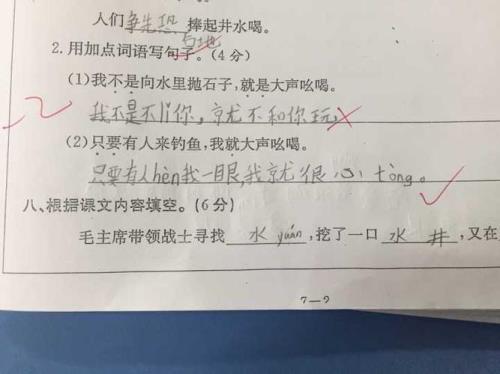 人们争先恐 捧起井水喝。
2.用加点词语写句子。(4分)
(1)我不是向水里抛石子,就是大声吆喝。
我不是不lǐ你,京尤不和你玩
(2)只要有人来钓鱼,我就大声吆喝。
只要有人hèn我一眼,我京尤很心tòng。
八、根据课文内容填空。(6分)
毛主席带领战士寻找 水yuán ,挖了一口 水井 ,又在
7—2